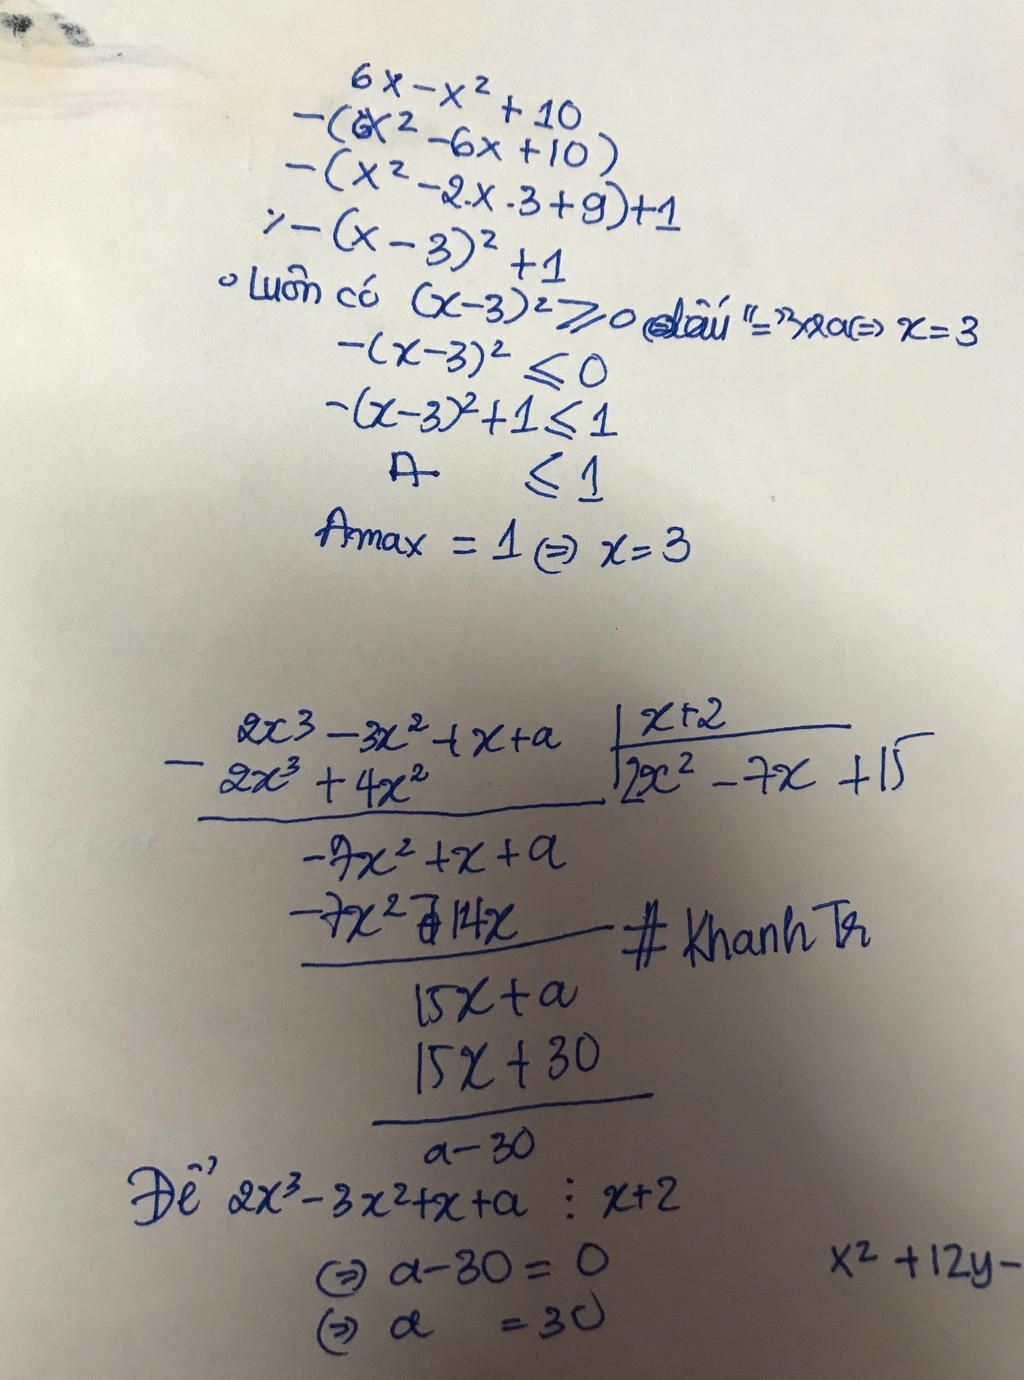 6x - x² + 10
-(x² - 6x + 10)
-(x² - 2.x.3 + 9) + 1
-(x - 3)² + 1
Luôn có (x-3)² ⩾ 0 dấu "=" x2a ⇔ x = 3
-(x-3)² ⩽ 0
-(x-3)² + 1 ⩽ 1
A ⩽ 1
Amax = 1 ⇔ x = 3
2x³ - 3x² + x + a | x+2
- 2x³ + 4x² | 2x² - 7x + 15
-7x² + x + a
-7x² - 14x # Khanh Tr
15x + a
15x + 30
a - 30
Để 2x³ - 3x² + x + a ⋮ x+2
⇔ a - 30 = 0
x² + 12y -
⇔ a = 30